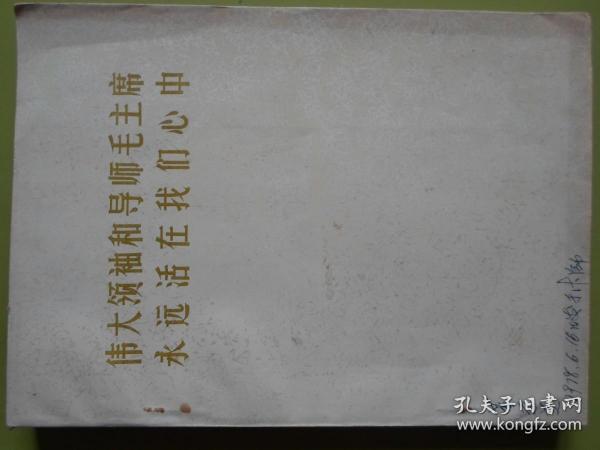 伟大领袖和导师毛主席
永远活在我们心中
1978.6.16
孔夫子旧书网
www.kongfz.com